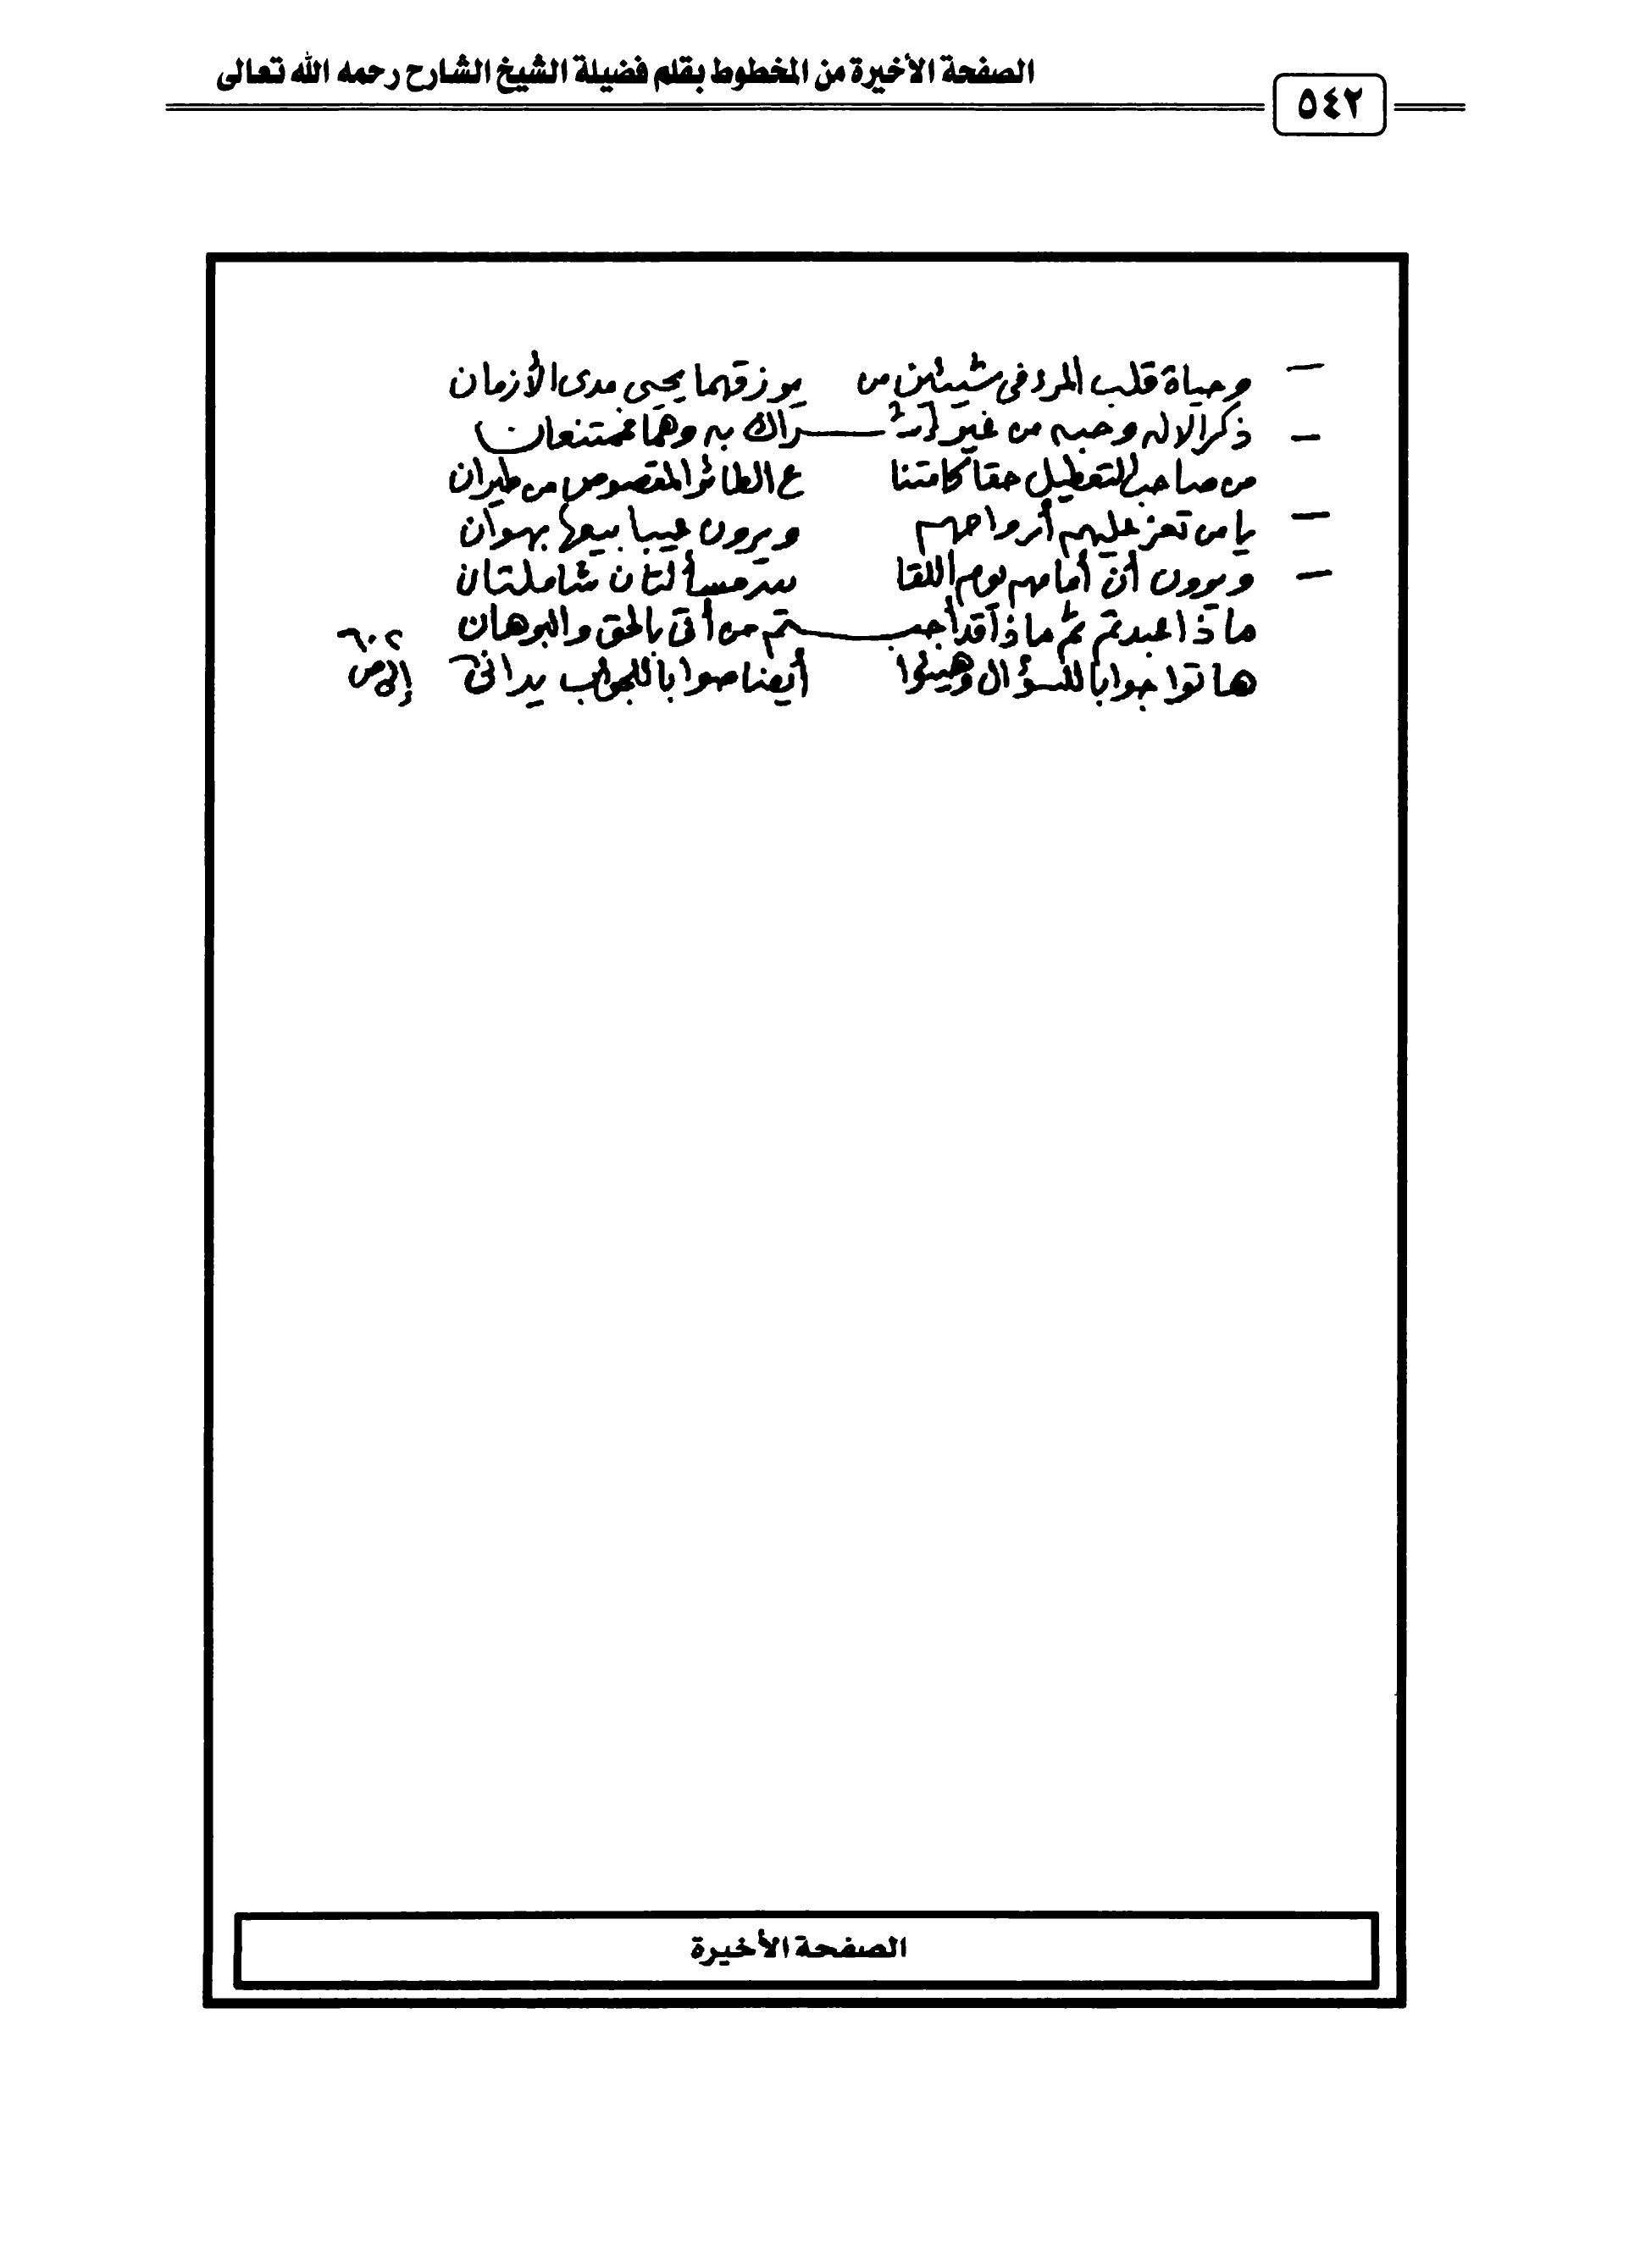 الصفحة الأخيرة من المخطوط بقلم فضيلة الشيخ الشارح رحمه الله تعالى
٥٤٢
— وحياة قلب المرء في شيئين من يرزقهما يحيى مدى الأزمان
— ذكر الاله وحبه من غير إشـــراك به وهما فممتنعان
من صاحب التعطيل حقا كامتنا ع الطائر المقصوص من طيران
— يا من تعز عليهم أرواحهم ويرون عيبا بيعها بهوان
— ويرون أن أمامهم يوم اللقا لله مسألتان شاملتان
ماذا عبدتم ثم ماذا قد أجبـــتم من أتى بالحق والبرهان
٦٠٢
هاتوا جوابا للسؤال وهيئوا أيضا صوابا للجواب يداني
الصفحة الأخيرة